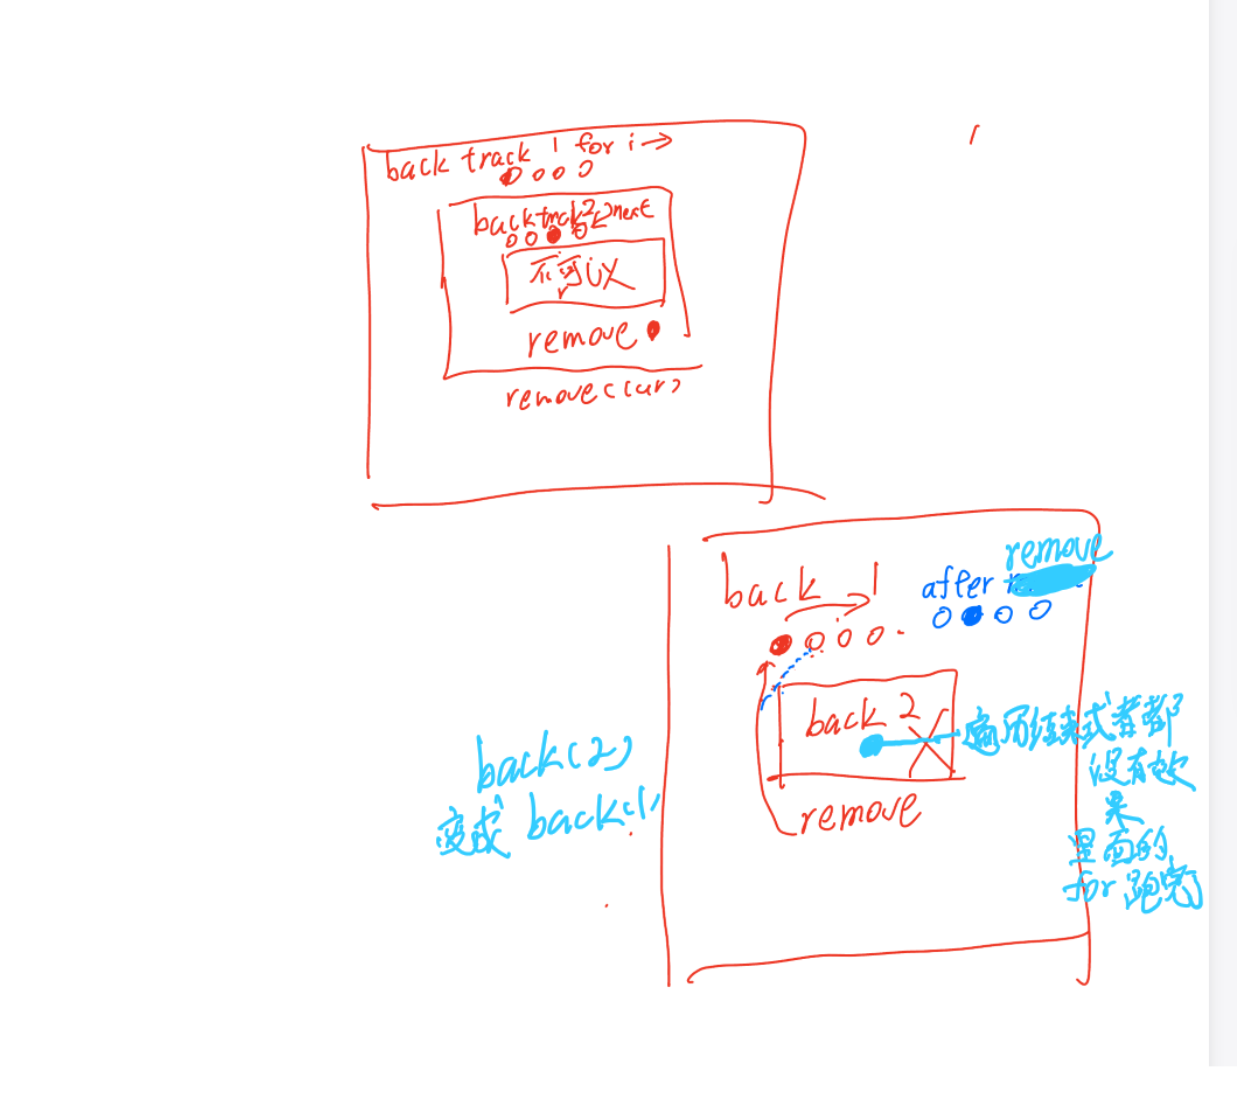 back track 1 for i →
backtrack2 next
不可以
remove
remove(cur)
remove
back 1
after
back 2
遍历结束或者都
没有效
果
里面的
for 跑完
remove
back(2)
变成 back(1)